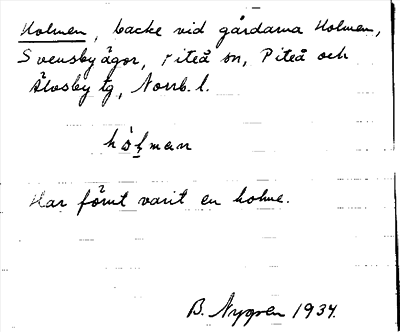 Holmen, backe vid gårdarna Holmen,
Svensbyägor, Piteå sn, Piteå och
Älvsby tg, Norrb. l.
hòḷman
Har förut varit en holme.
B. Nygren 1934.